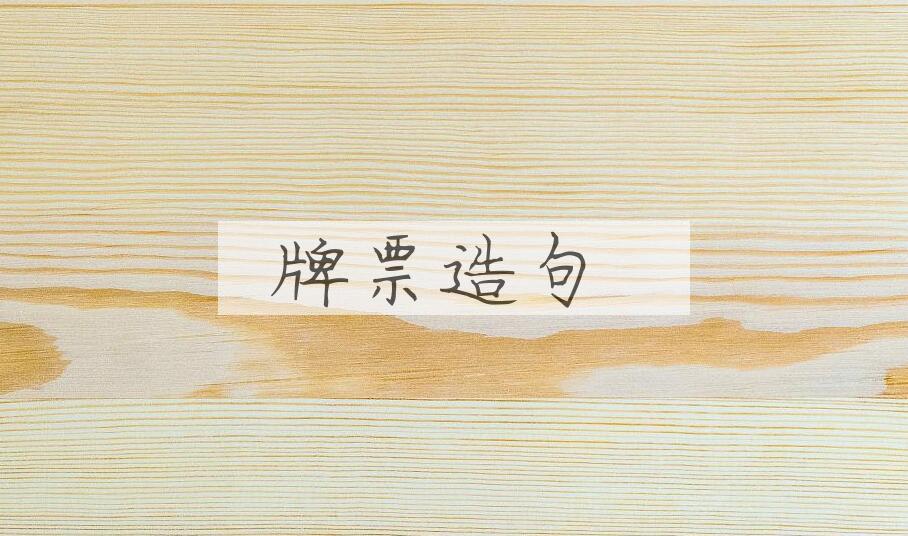 牌票造句